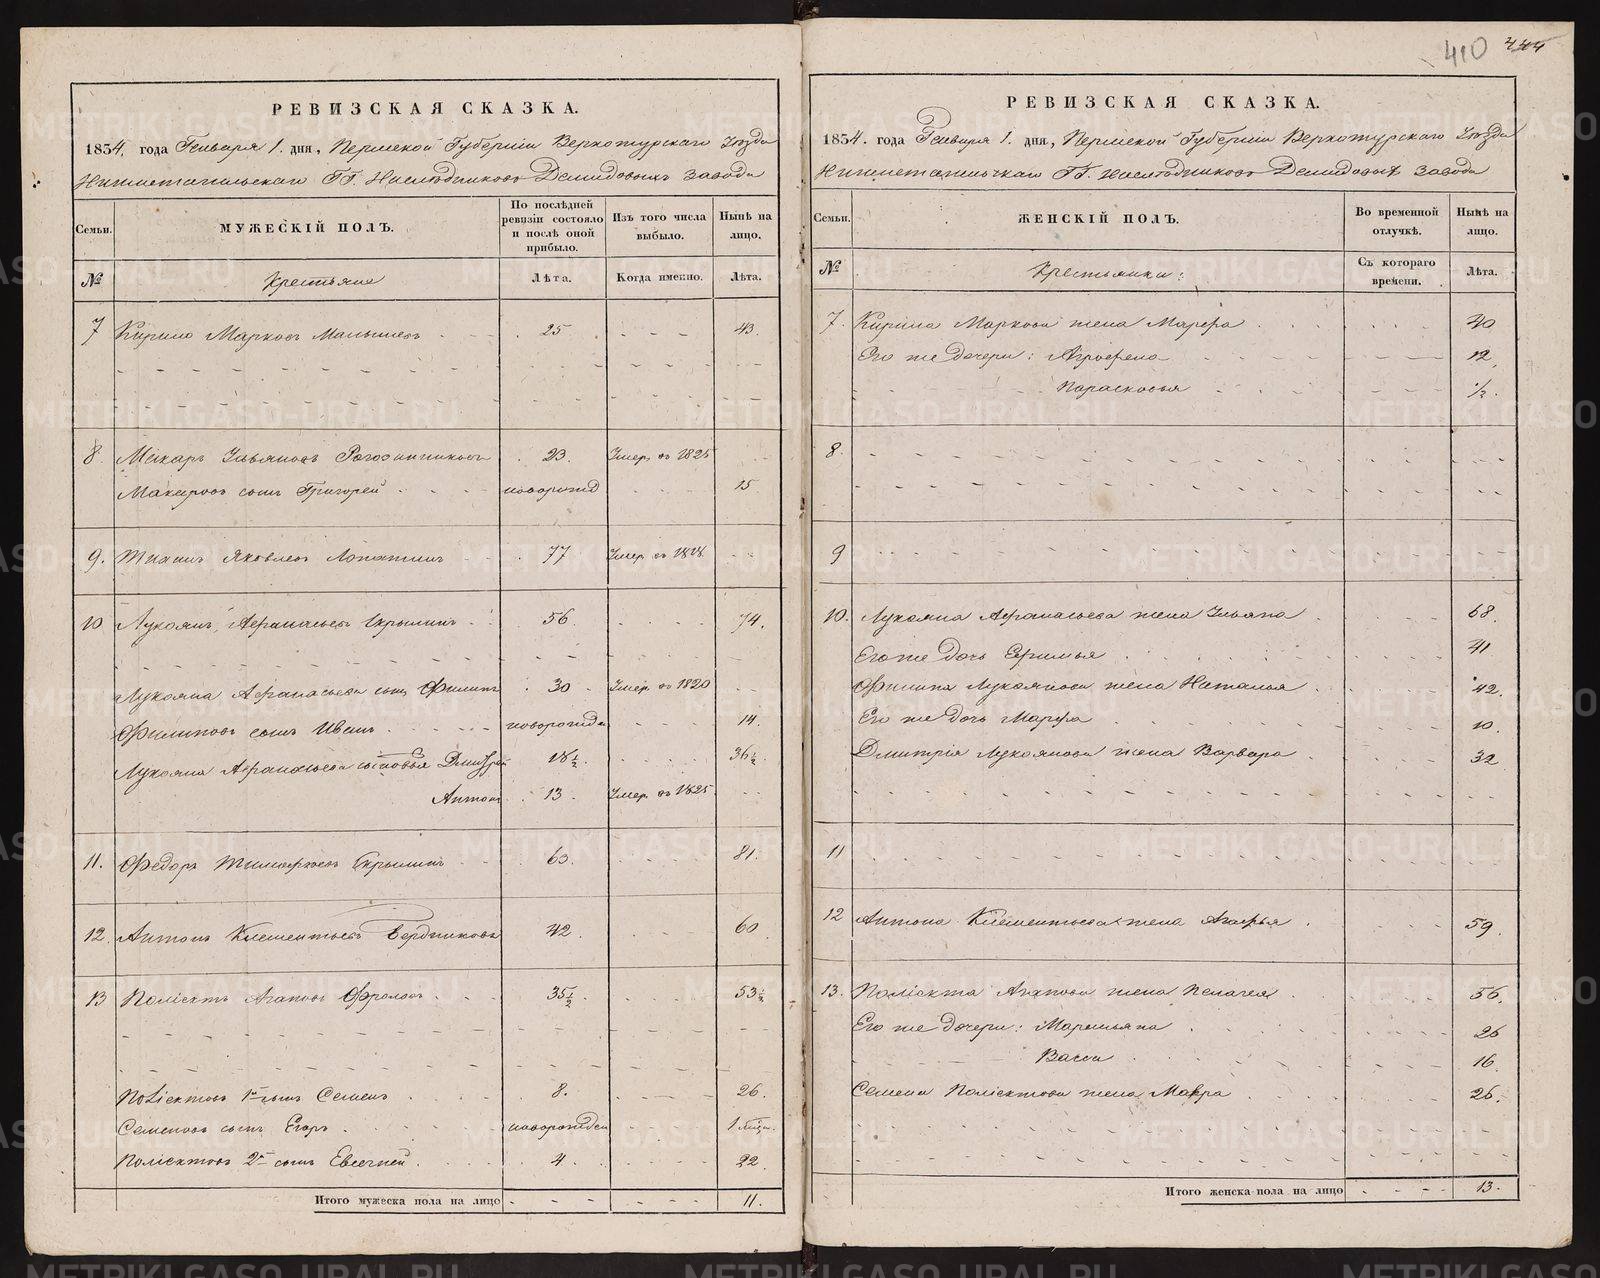 410 444
РЕВИЗСКАЯ СКАЗКА.
1834. года Генваря 1. дня, Пермской Губерніи Верхотурскаго Уѣзда
Нижнетагильскаго ГГ. Наслѣдниковъ Демидовыхъ завода
Семьи.
МУЖЕСКІЙ ПОЛЪ.
По послѣдней ревизіи состояло и послѣ оной прибыло.
Изъ того числа выбыло.
Нынѣ на лицо.
№ Крестьяне Лѣта. Когда именно. Лѣта.
7 Кирило Марковъ Малышевъ 25 43.
8. Макаръ Ульяновъ 23. Умер. въ 1825
Макаровъ сынъ Григорей новорожд 15
9. Яковлевъ Лопатинъ 77 Умер. въ 1828.
10 Лукоянъ Афанасьевъ Скрылинъ 56. 74.
Лукояна Афанасьева сынъ Филипъ 30 Умер. въ 1820
Филиповъ сынъ Иванъ новорожден 14.
Лукояна Афанасьева сыновья Дмитрей 18½. 36½.
Антонъ 13. Умер. въ 1825.
11. Федоръ Тимофѣевъ Скрылинъ 63. 81.
12. Антонъ Клементьевъ Бердниковъ 42. 60
13 Поліектъ Агаповъ Фроловъ 35½ 53½
Поліектовъ 1й сынъ Семенъ 8. 26.
Семеновъ сынъ Егоръ новорожден 1 мѣся.
Поліектовъ 2й сынъ Евсегней 4. 22.
Итого мужеска пола на лицо 11.
РЕВИЗСКАЯ СКАЗКА.
1834. года Генваря 1. дня, Пермской Губерніи Верхотурскаго Уѣзда
Нижнетагильскаго ГГ. Наслѣдниковъ Демидовыхъ завода
Семьи.
ЖЕНСКІЙ ПОЛЪ.
Во временной отлучкѣ.
Нынѣ на лицо.
№ Крестьянки: Съ котораго времени. Лѣта.
7. Кирила Маркова жена Марфа 40
Его же дочери: Агрофена 12
Парасковья ½.
8.
9
10. Лукояна Афанасьева жена Ульяна 68.
Его же дочь Ефимья 41
Филипа Лукоянова жена Наталья 42.
Его же дочь Марфа 10.
Дмитрія Лукоянова жена Варвара 32
11
12 Антона Клементьева жена Агафья 59.
13. Поліекта Агапова жена Пелагея 56.
Его же дочери: Маремьяна 26
Васса 16.
Семена Поліектова жена Мавра 26.
Итого женска пола на лицо 13.
METRIKI.GASO-URAL.RU